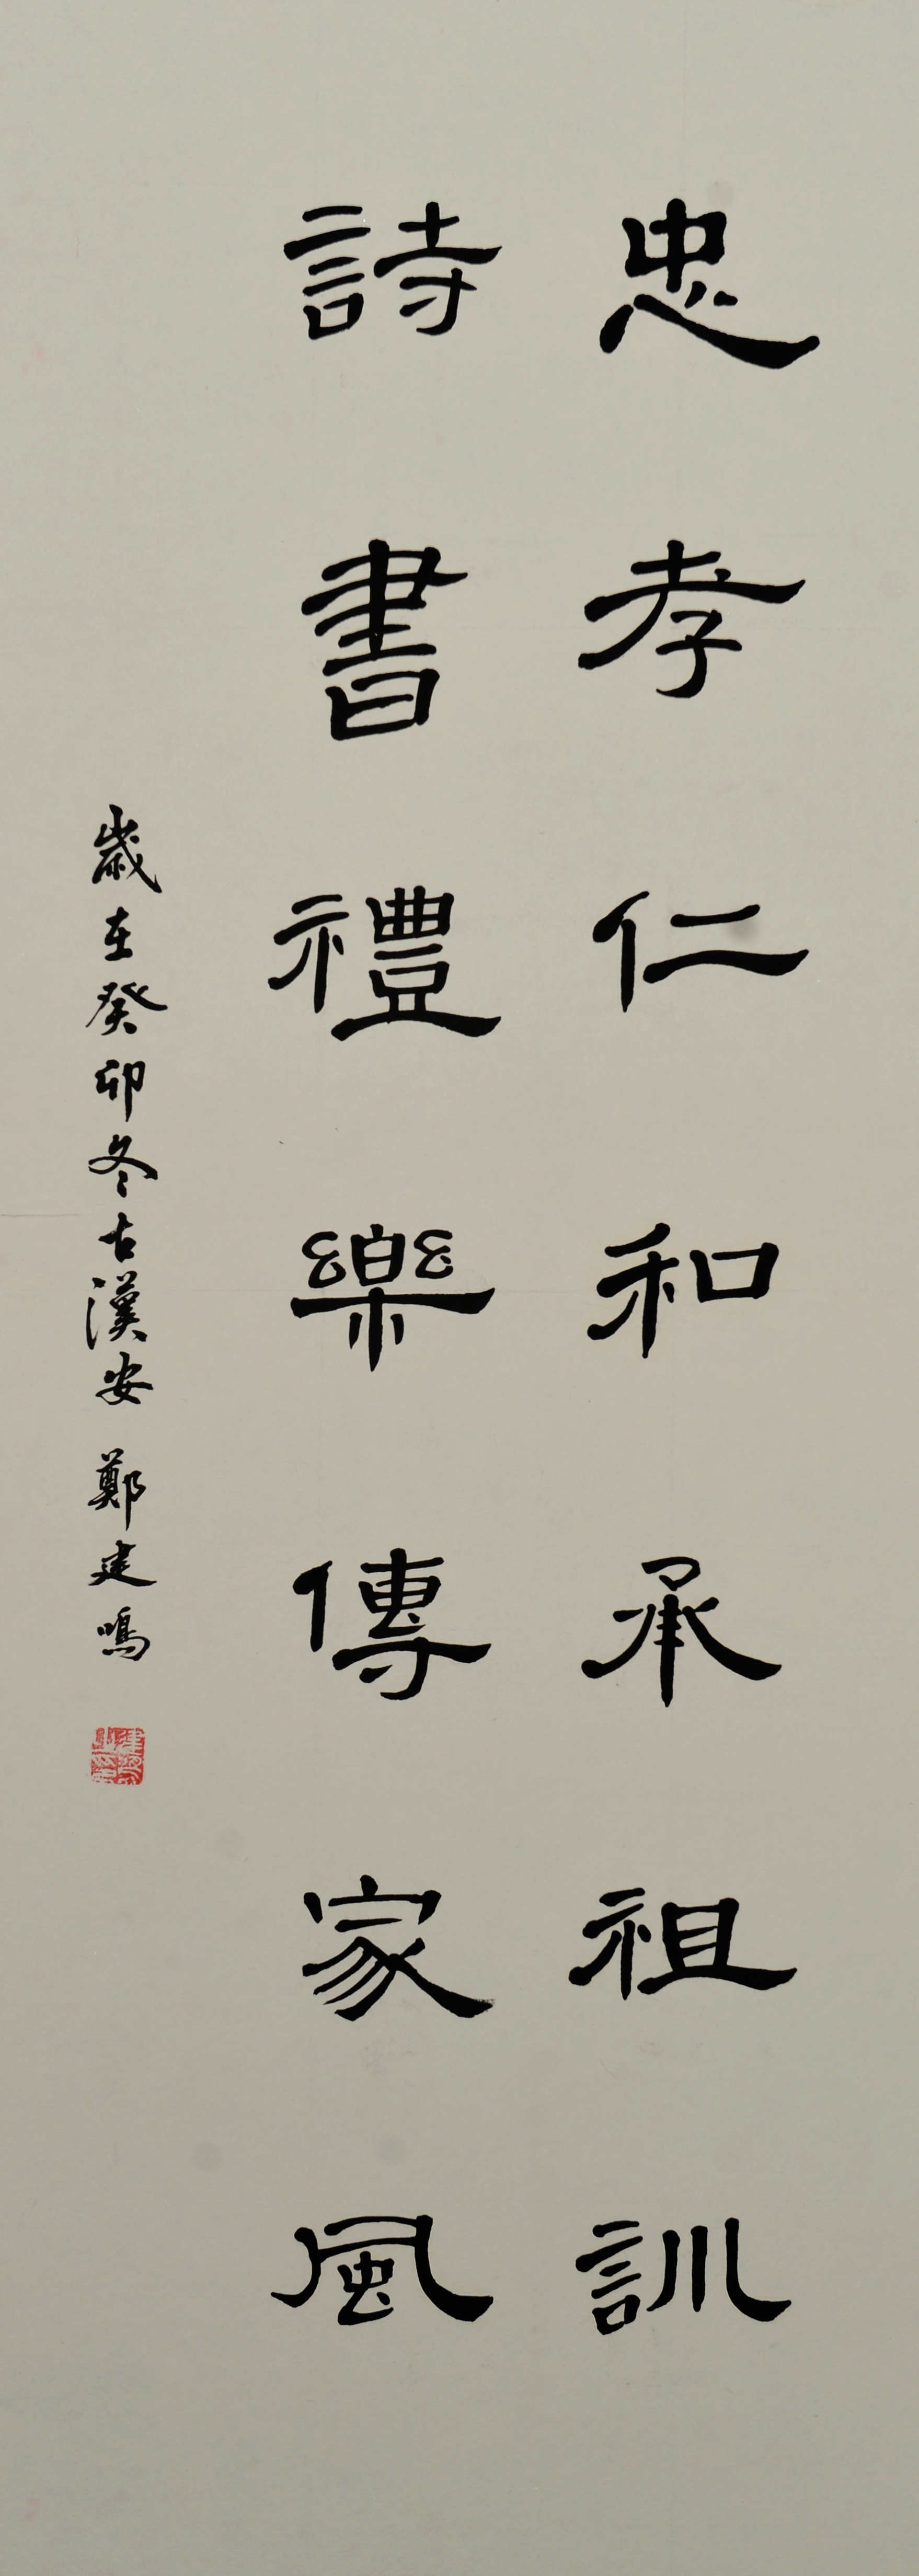 忠孝仁和承祖訓
詩書禮樂傳家風
歲在癸卯冬古漢安 鄭建鳴